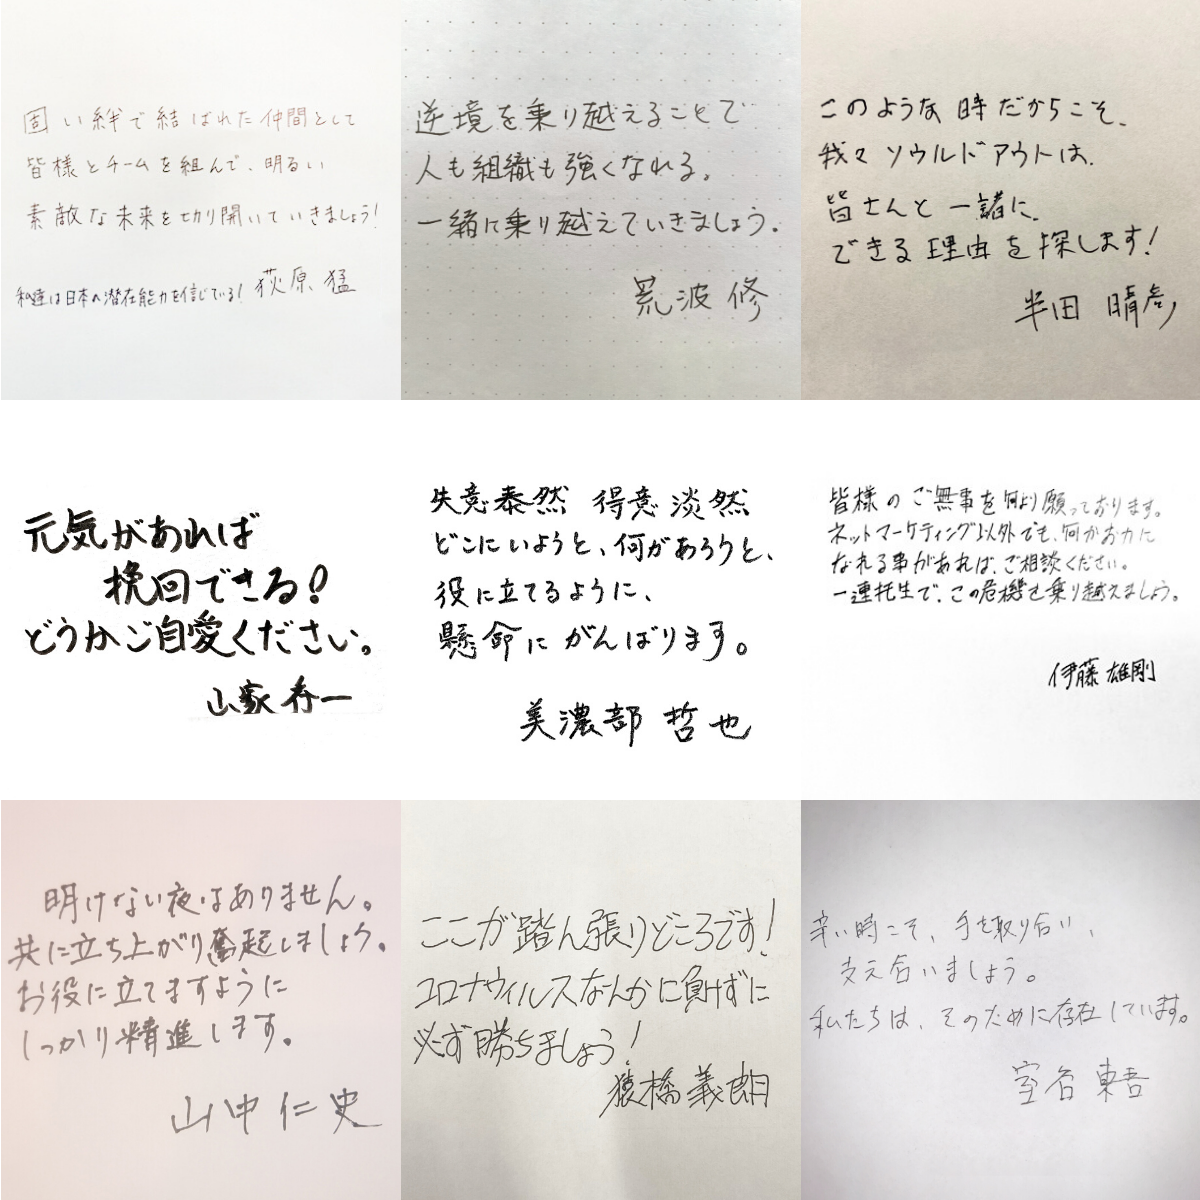 固い絆で結ばれた仲間として
皆様とチームを組んで、明るい
素敵な未来を切り開いていきましょう!
私達は日本の潜在能力を信じている! 荻原 猛
逆境を乗り越えることで
人も組織も強くなれる。
一緒に乗り越えていきましょう。
荒波 修
このような時だからこそ、
我々ソウルドアウトは、
皆さんと一諸に、
できる理由を探します!
半田 晴彦
元気があれば
挽回できる!
どうかご自愛ください。
山家 秀一
失意泰然 得意淡然
どこにいようと、何があろうと、
役に立てるように、
懸命にがんばります。
美濃部 哲也
皆様のご無事を何より願っております。
ネットマーケティング以外でも、何かお力に
なれる事があれば、ご相談ください。
一連托生で、この危機を乗り越えましょう。
伊藤 雄剛
明けない夜はありません。
共に立ち上がり奮起しましょう。
お役に立てますように
しっかり精進します。
山中 仁史
ここが踏ん張りどころです!
コロナウィルスなんかに負けずに
必ず勝ちましょう!
猿橋 義朗
辛い時こそ、手を取り合い、
支え合いましょう。
私たちは、そのために存在しています。
室谷 東吾